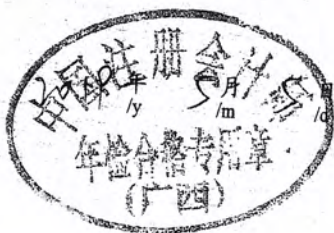 中国注册会计师
年 月 日
/y /m /d
年检合格专用章
(广西)